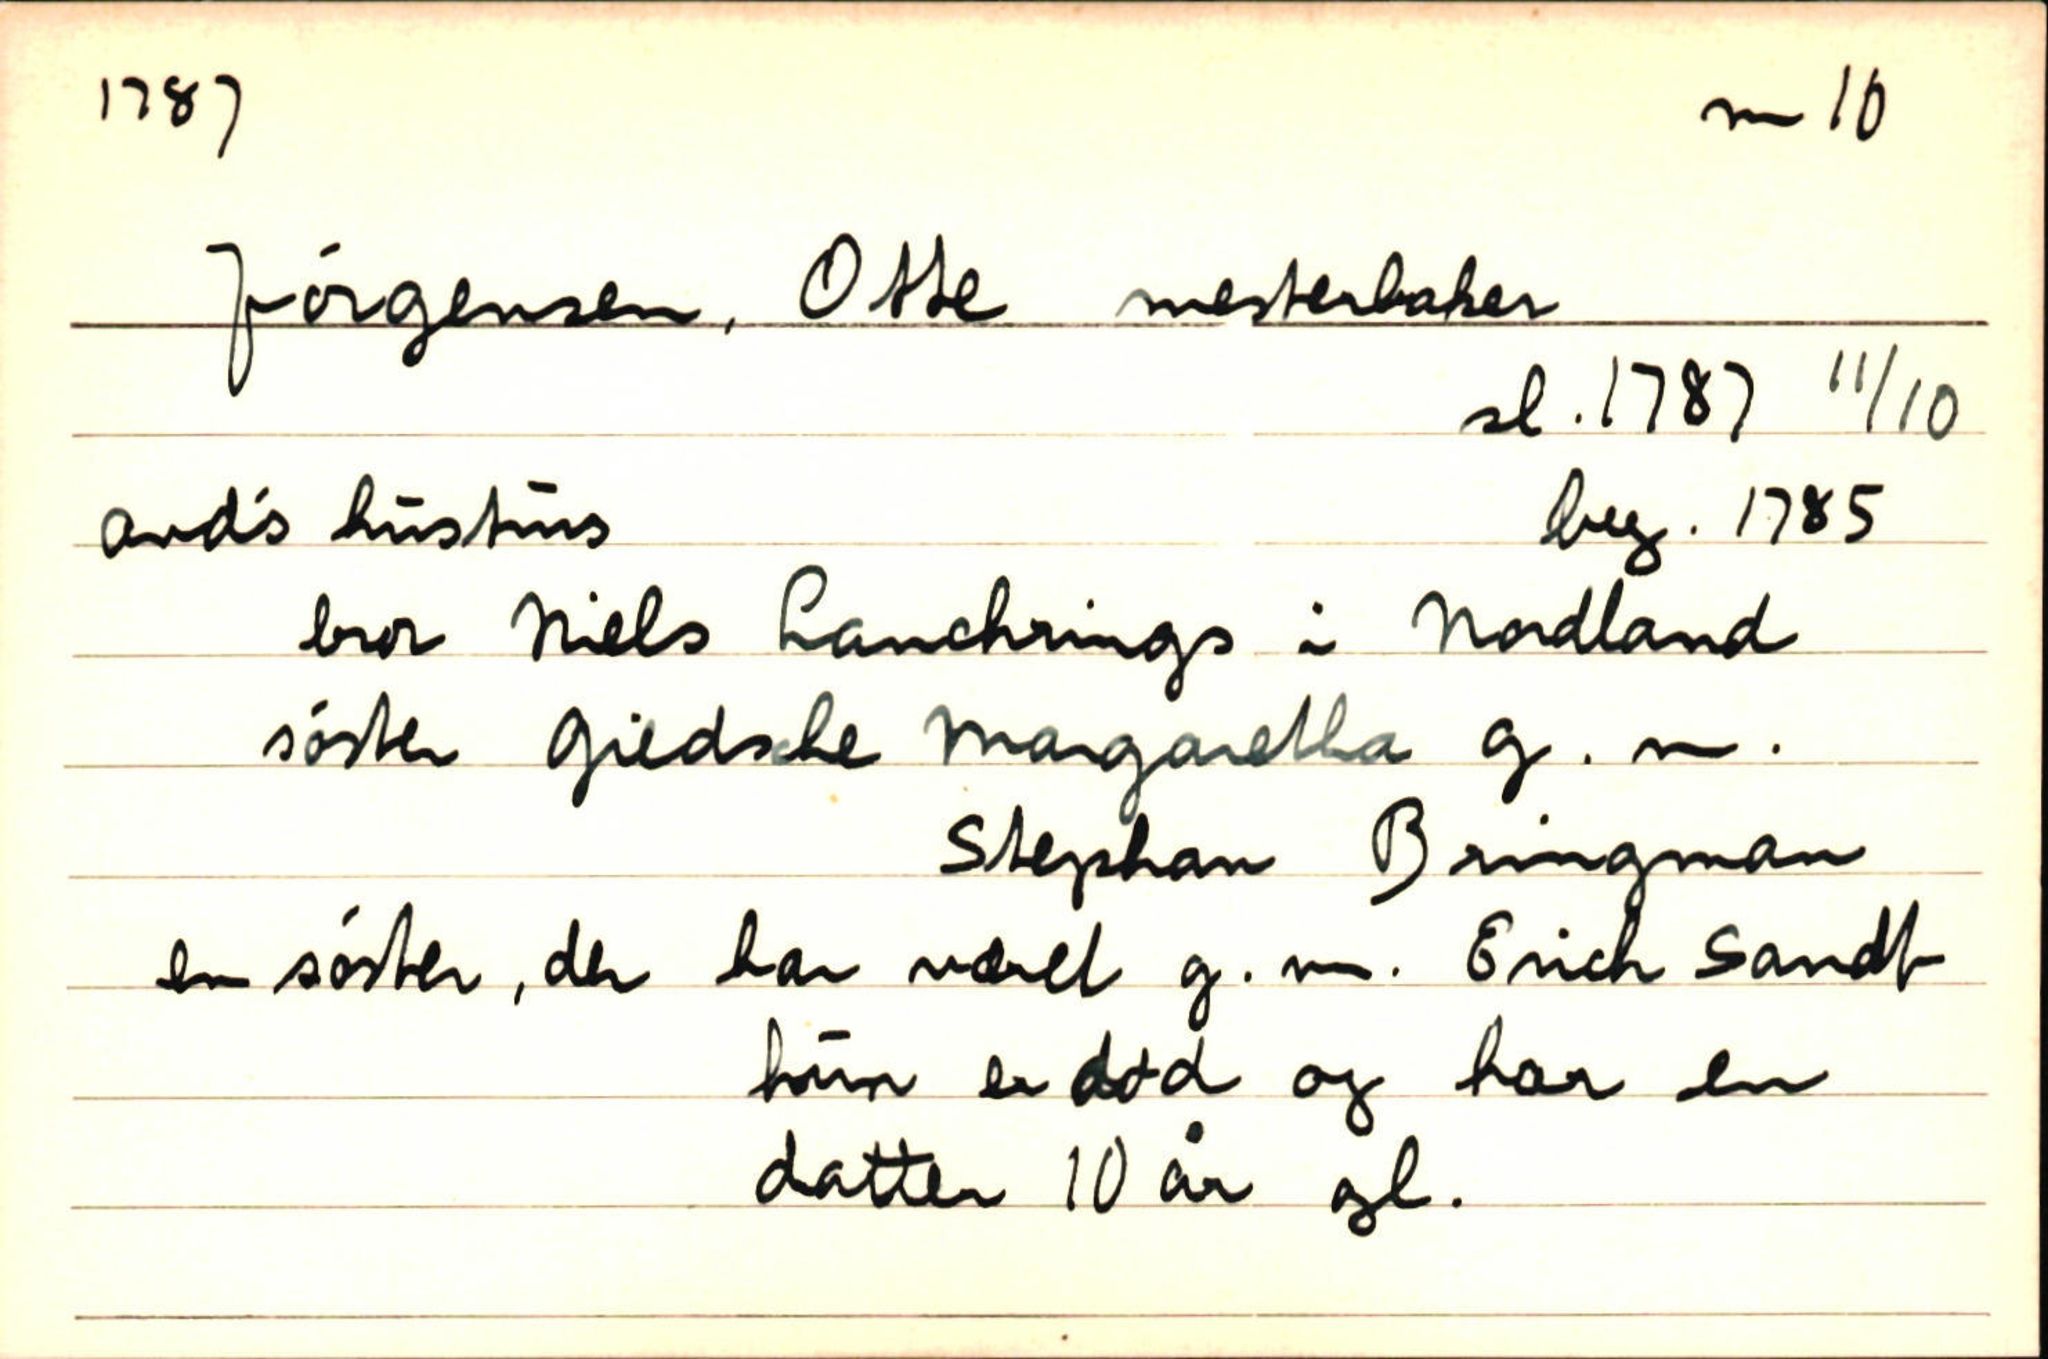 1787 m 10
Jörgensen, Otte mesterbaker
sl. 1787 11/10
avd's hustrus beg. 1785
bror Niels Lanchrings i Nordland
söster Giedsche Margaretha g. m.
Stephan Bringman
en söster, der har været g. m. Erich Sandt
hun er død og har en
datter 10 år gl.